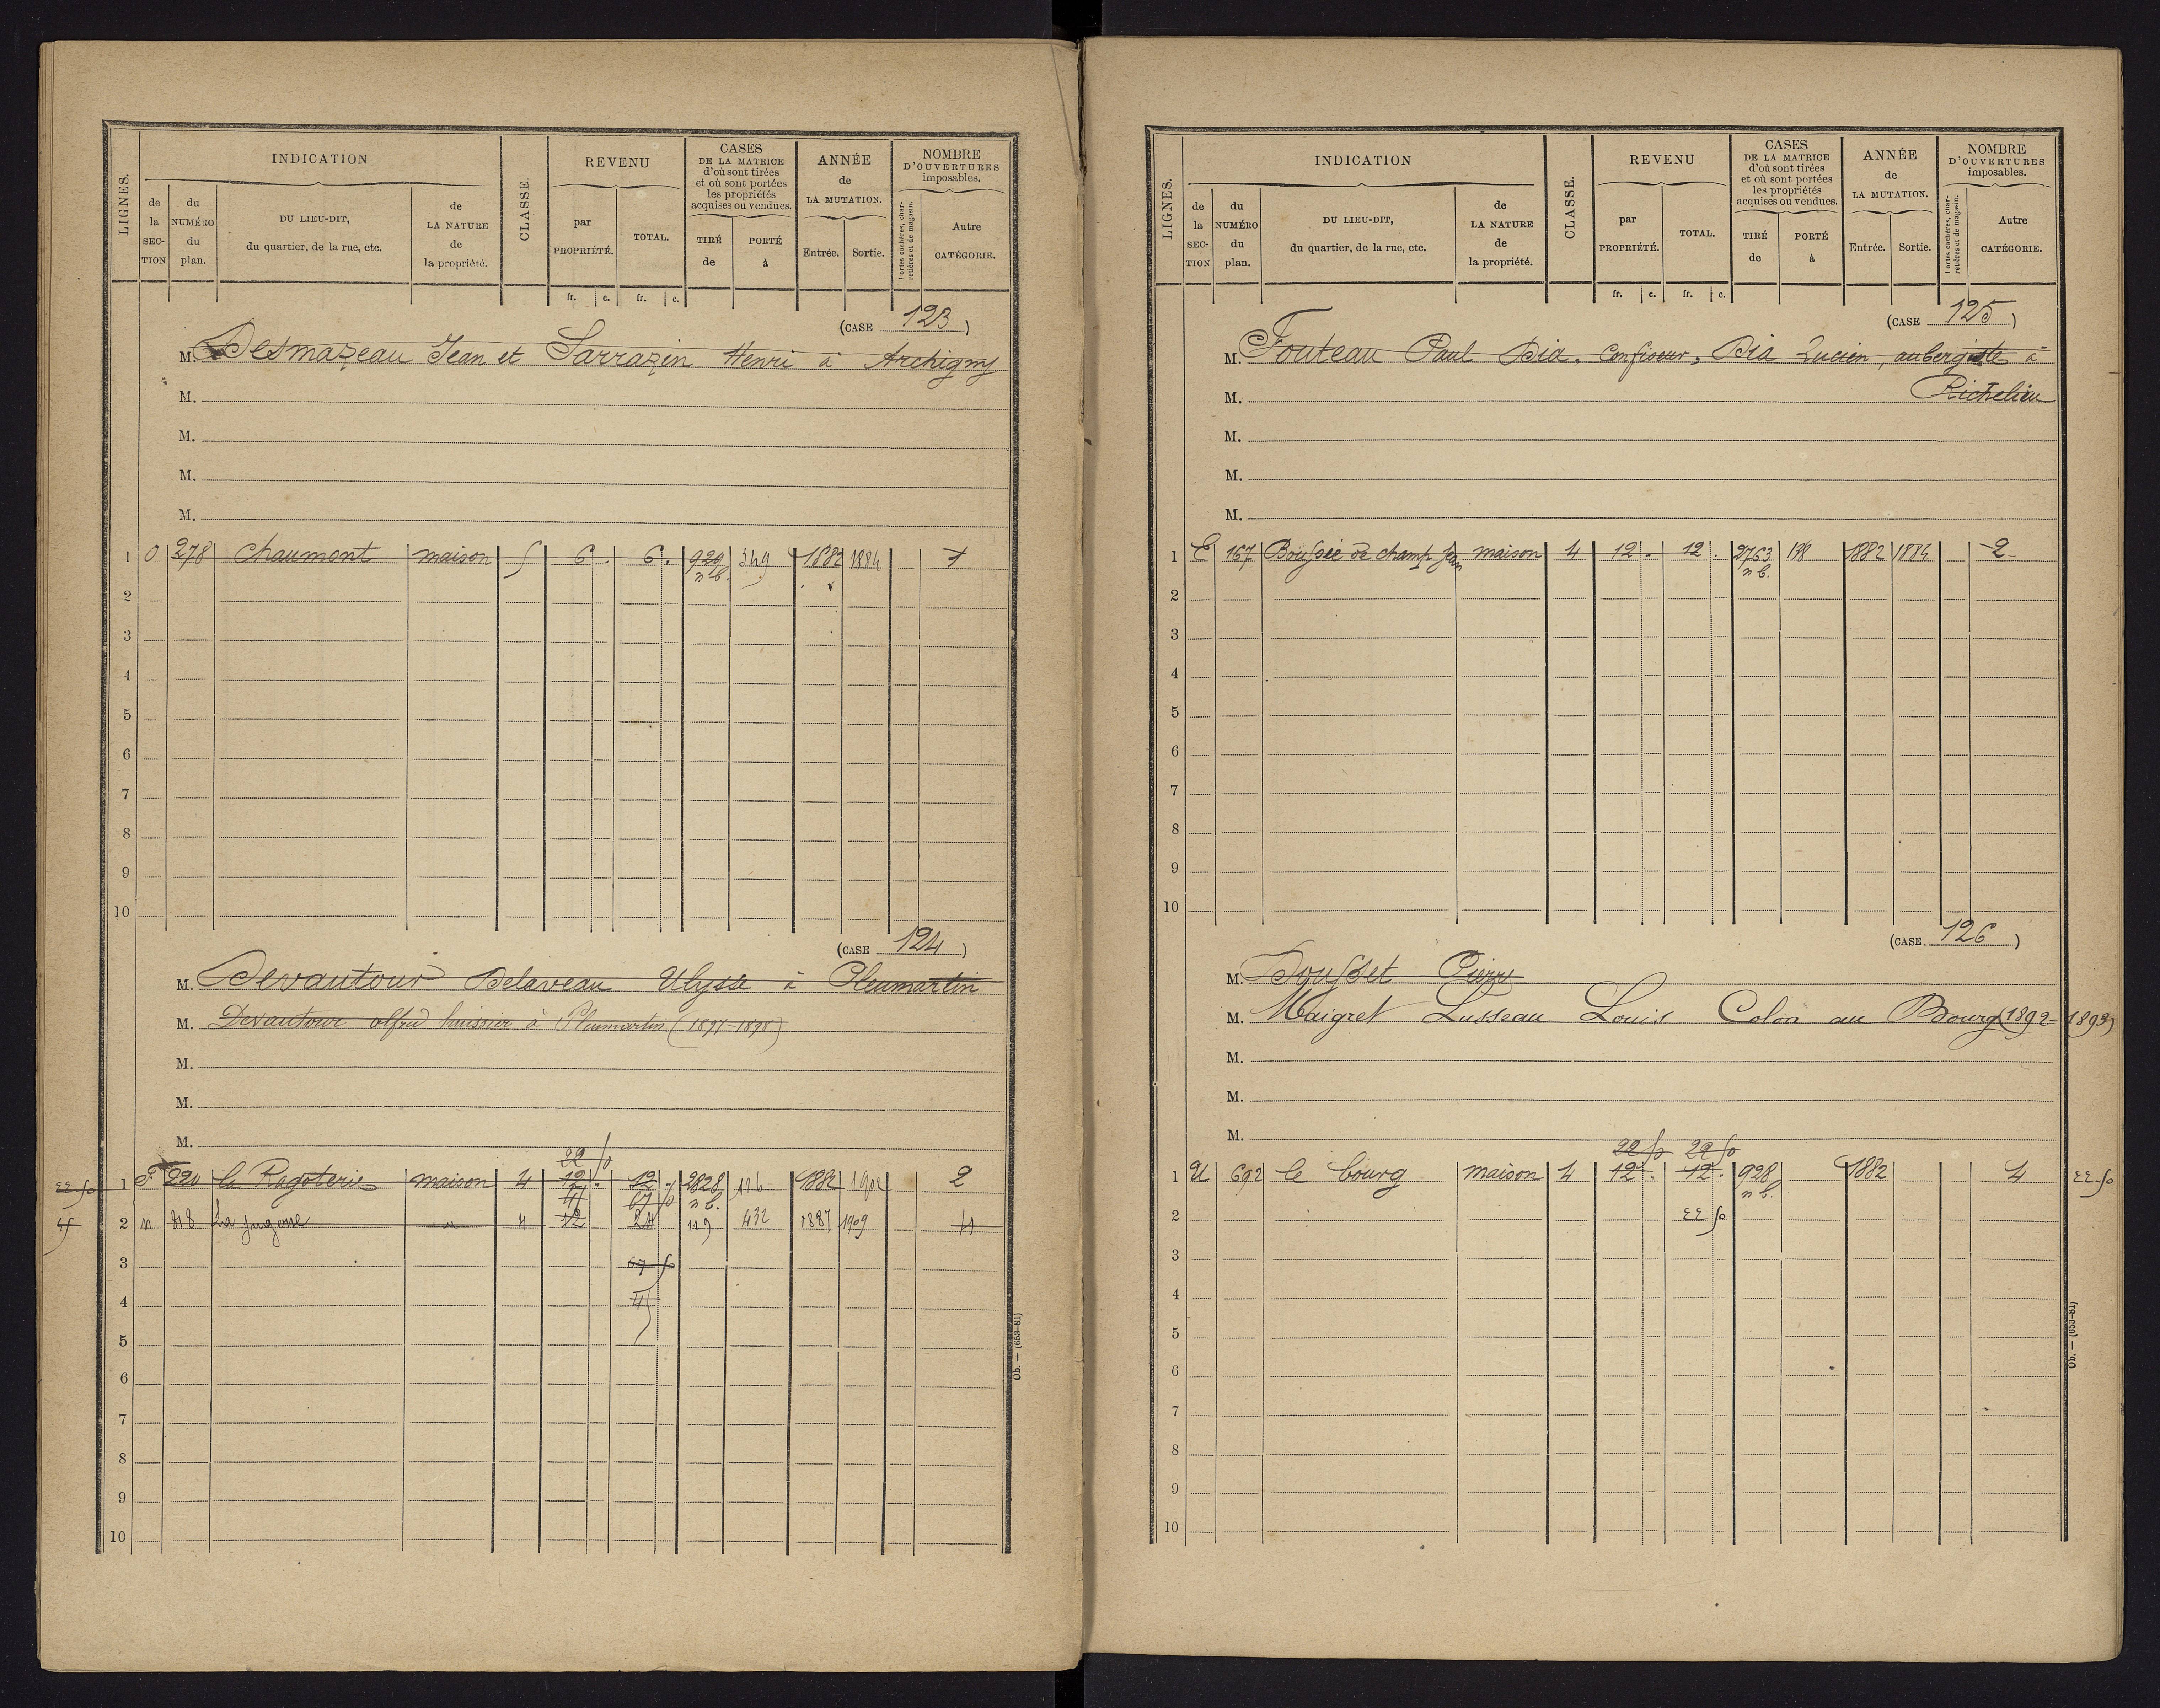 LIGNES. INDICATION CLASSE. REVENU CASES DE LA MATRICE d'où sont tirées et où sont portées les propriétés acquises ou vendues. ANNÉE de LA MUTATION. NOMBRE D'OUVERTURES imposables.
de la SECTION du NUMÉRO du plan. DU LIEU-DIT, du quartier, de la rue, etc. de LA NATURE de la propriété. par PROPRIÉTÉ. TOTAL. TIRÉ de PORTÉ à Entrée. Sortie. Portes cochères, charretières et de magasin. Autre CATÉGORIE.
fr. c. fr. c.
(CASE 123)
M. Desmazeau Jean et Sarrazin Henri à Archigny
M.
M.
M.
M.
1 O 278 Chaumont maison 5 6 . 6 . 929 349 1882 1884 1
n b.
2
3
4
5
6
7
8
9
10
(CASE 124)
M. Devautour Delaveau Ulysse à Pleumartin
M. Devautour alfred huissier à Pleumartin (1897-1898)
M.
M.
M.
22 50
22 50 1 F 220 la Ragoterie maison 4 12 . 12 . 2828 1882 1902 2
45 67 50 n b.
45 2 n 818 4 12 24 119 432 1887 1909 4
3 67 50
4 45
5
6
7
8
9
10
Ob. — (653-81)
LIGNES. INDICATION CLASSE. REVENU CASES DE LA MATRICE d'où sont tirées et où sont portées les propriétés acquises ou vendues. ANNÉE de LA MUTATION. NOMBRE D'OUVERTURES imposables.
de la SECTION du NUMÉRO du plan. DU LIEU-DIT, du quartier, de la rue, etc. de LA NATURE de la propriété. par PROPRIÉTÉ. TOTAL. TIRÉ de PORTÉ à Entrée. Sortie. Portes cochères, charretières et de magasin. Autre CATÉGORIE.
fr. c. fr. c.
(CASE 125)
M. Fouteau Paul Dia, Confiseur, Dia Lucien, aubergiste à
M. Richelieu
M.
M.
M.
1 E 167 de champ maison 4 12 . 12 . 2763 1882 1884 2
n b.
2
3
4
5
6
7
8
9
10
(CASE 126)
M. Dousset Pierre
M. Maigret Lusseau Louis Colon au Bourg (1892-1893)
M.
M.
M.
22 50 22 50
1 U 692 le bourg maison 4 12 . 12 . 928 1882 4 22-50
n b.
2 22 50
3
4
5
6
7
8
9
10
Ob. — (653-81)